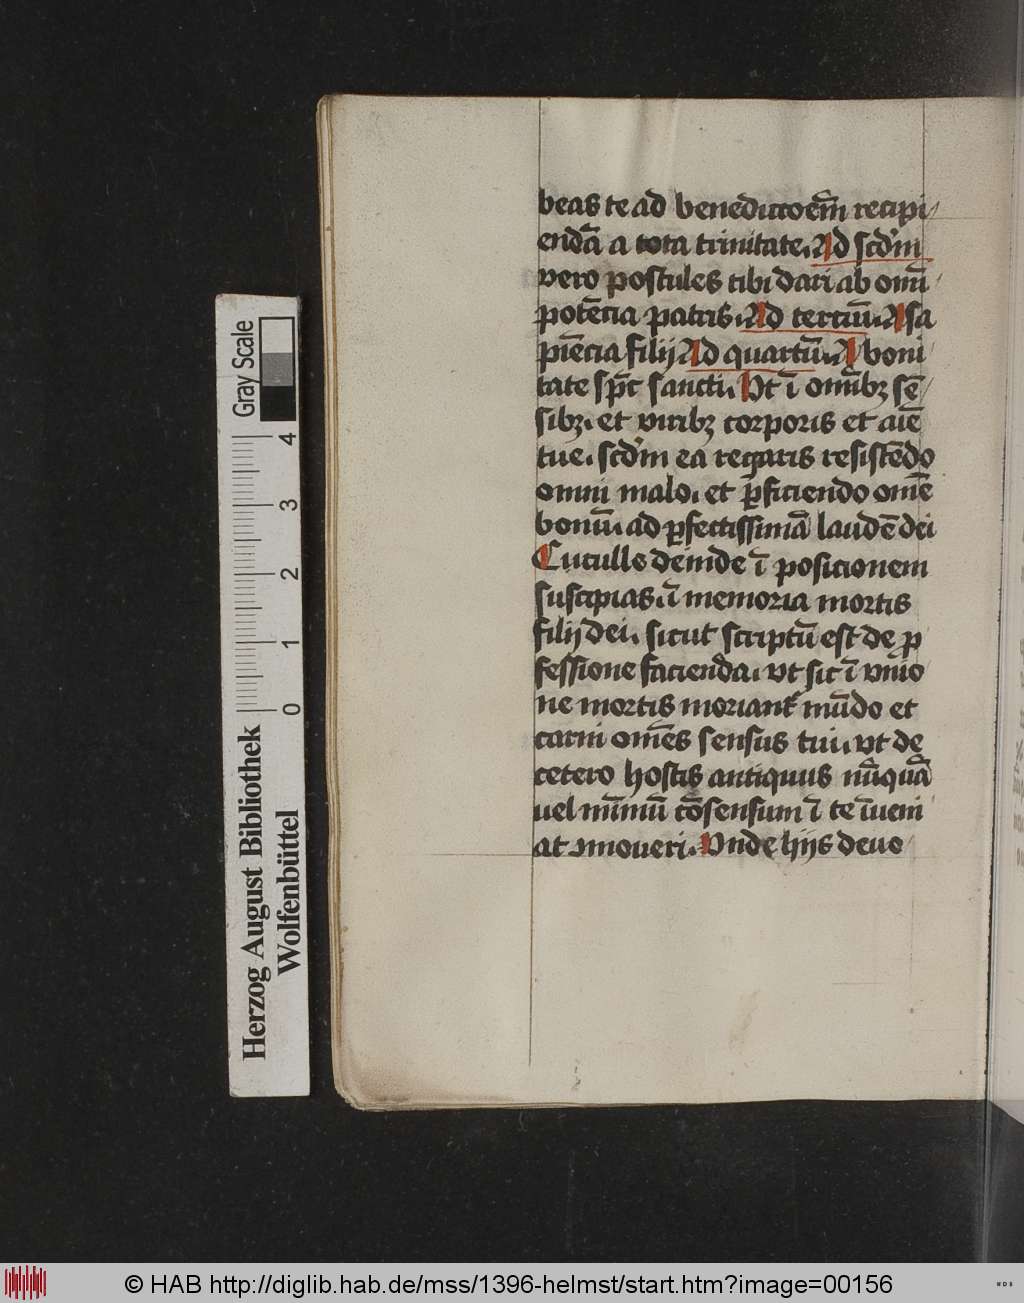 beas te ad benedictōem̄ recipi/
endā a tota trinitate. Ad scd'm
vero postules tibi dari ab om̄i
potēcia patris. Ad terciū. A sa
piēcia filij Ad quartū. A boni
tate sp̄c sancti. Ut ī om̄ibꝫ sē/
sibꝫ. et viribꝫ corporis et aīe
tue. scd'm ea regaris resistēdo
omni malo. et ꝑficiendo om̄e
bonū. ad ꝑfectissimā laudē dei
Cuculle deinde ī posicionem
suscipias. ī memoria mortis
filij dei. sicut scriptū est de ꝓ
fessione facienda. vt sic ī vnio
ne mortis moriant᷑ mūdo et
carni om̄es sensus tui. vt de
cetero hostis antiquus nūquā
vel mīmū cōsensum ī te īueni
at ꝯmoueri. Vnde hijs deuo
Herzog August Bibliothek
Wolfenbüttel
0 1 2 3 4
Gray Scale
© HAB http://diglib.hab.de/mss/1396-helmst/start.htm?image=00156
WDB